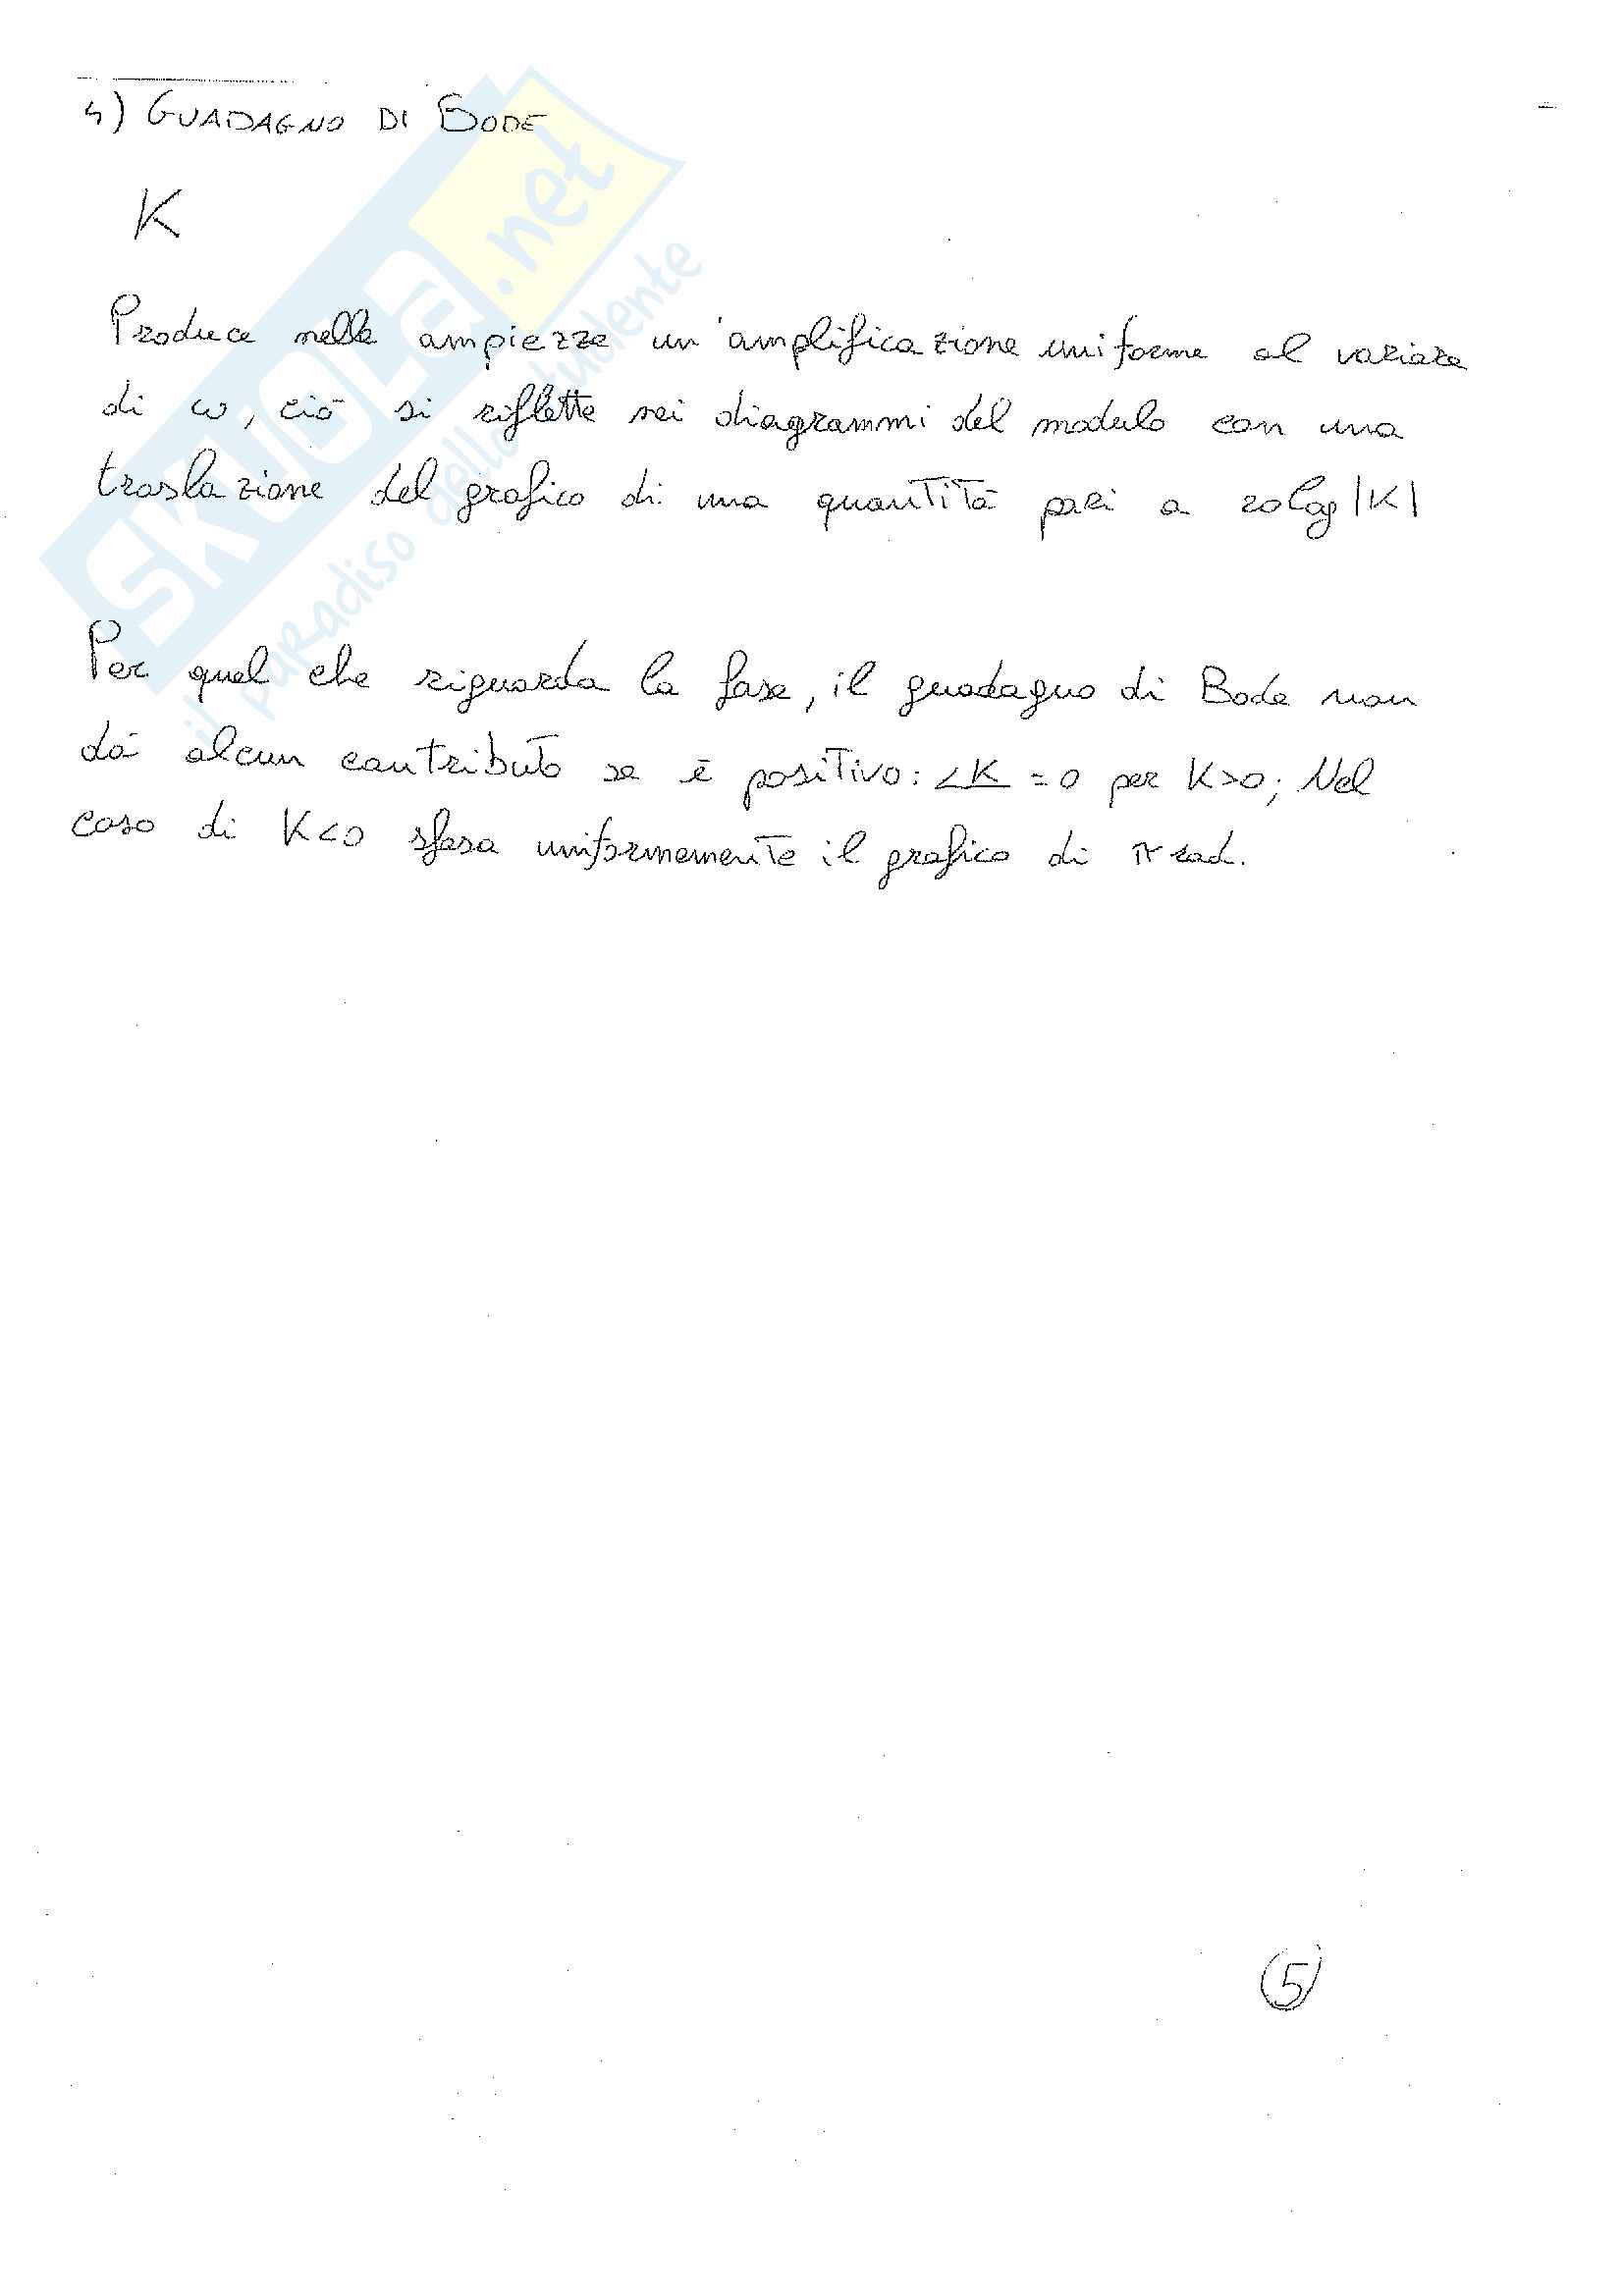 4) GUADAGNO DI BODE
K
Produce nelle ampiezze un'amplificazione uniforme al variare
di ω, ciò si riflette nei diagrammi del modulo con una
traslazione del grafico di una quantità pari a 20 log |K|
Per quel che riguarda la fase, il guadagno di Bode non
dà alcun contributo se è positivo: ∠K = 0 per K>0; Nel
caso di K<0 sfasa uniformemente il grafico di π rad.
5
SKUOLA.net
il paradiso dello studente